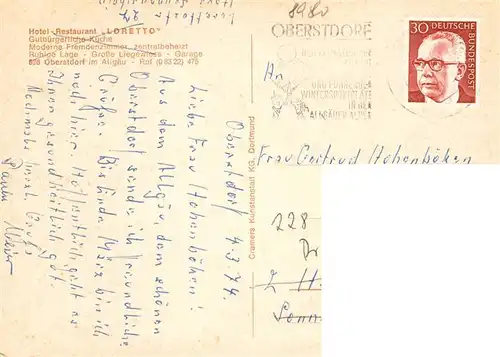 Hotel-Restaurant „LORETTO"
Gutbürgerliche Küche
Moderne Fremdenzimmer, zentralbeheizt
Ruhige Lage - Große Liegewiese - Garage
898 Oberstdorf im Allgäu - Ruf (0 83 22) 475
8980
OBERSTDORF
WINTERSPORTPLATZ
IN DEN
ALLGÄUER ALPEN
30 DEUTSCHE
BUNDESPOST
An
Frau Gertrud Hohenböken
228
Cramers Kunstanstalt KG, Dortmund
Oberstdorf 4.3.74
Liebe Frau Hohenböken!
Aus dem Allgäu, dem schönen
Oberstdorf sende ich freundliche
Grüße. Bis Ende März bin ich
noch hier. Hoffentlich geht es
Ihnen gesundheitlich gut.
Nochmals herzl. Gruß